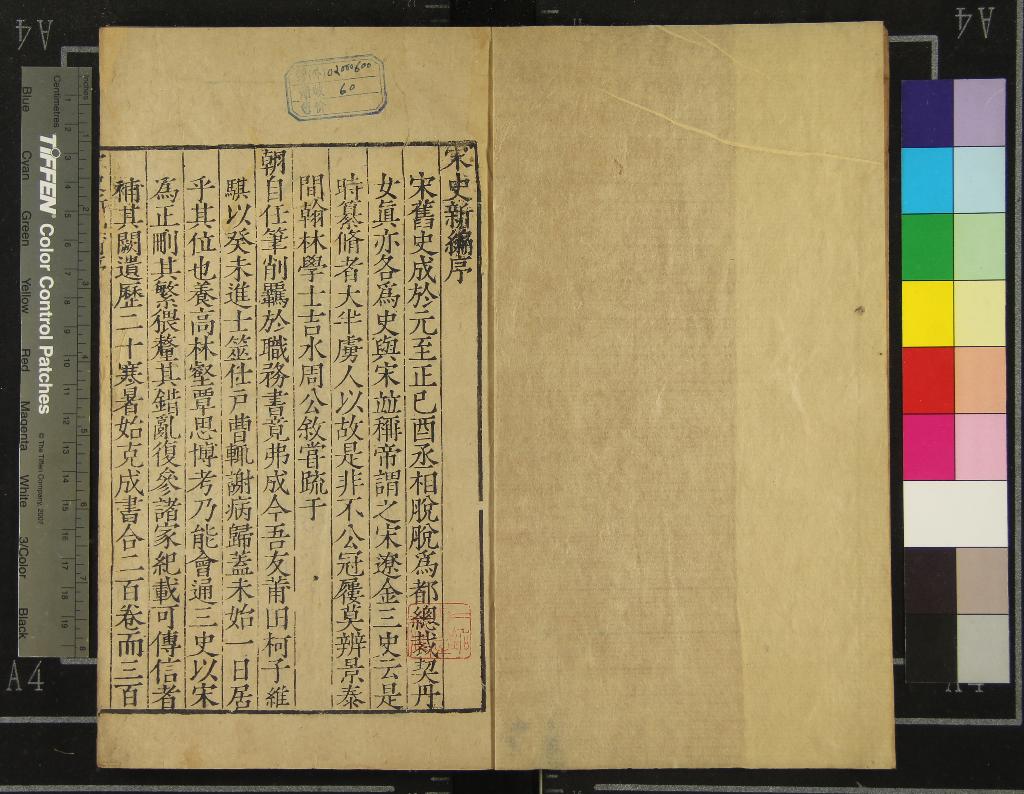 宋史新編序
宋舊史成於元至正己酉丞相脫脫爲都總裁契丹
女眞亦各爲史與宋並稱帝謂之宋遼金三史云是
時纂脩者大半虜人以故是非不公冠屨莫辨景泰
間翰林學士吉水周公敘嘗疏于
朝自任筆削羈於職務書竟弗成今吾友莆田柯子維
騏以癸未進士筮仕戸曹輒謝病歸蓋未始一日居
乎其位也養高林壑覃思博考乃能會通三史以宋
爲正刪其繁猥釐其錯亂復參諸家紀載可傳信者
補其闕遺歷二十寒暑始克成書合二百卷而三百
02000600
60
TIFFEN Color Control Patches
© The Tiffen Company, 2007
Centimetres
Inches
Blue
Cyan
Green
Yellow
Red
Magenta
White
3/Color
Black
A4
A4
A4
A4